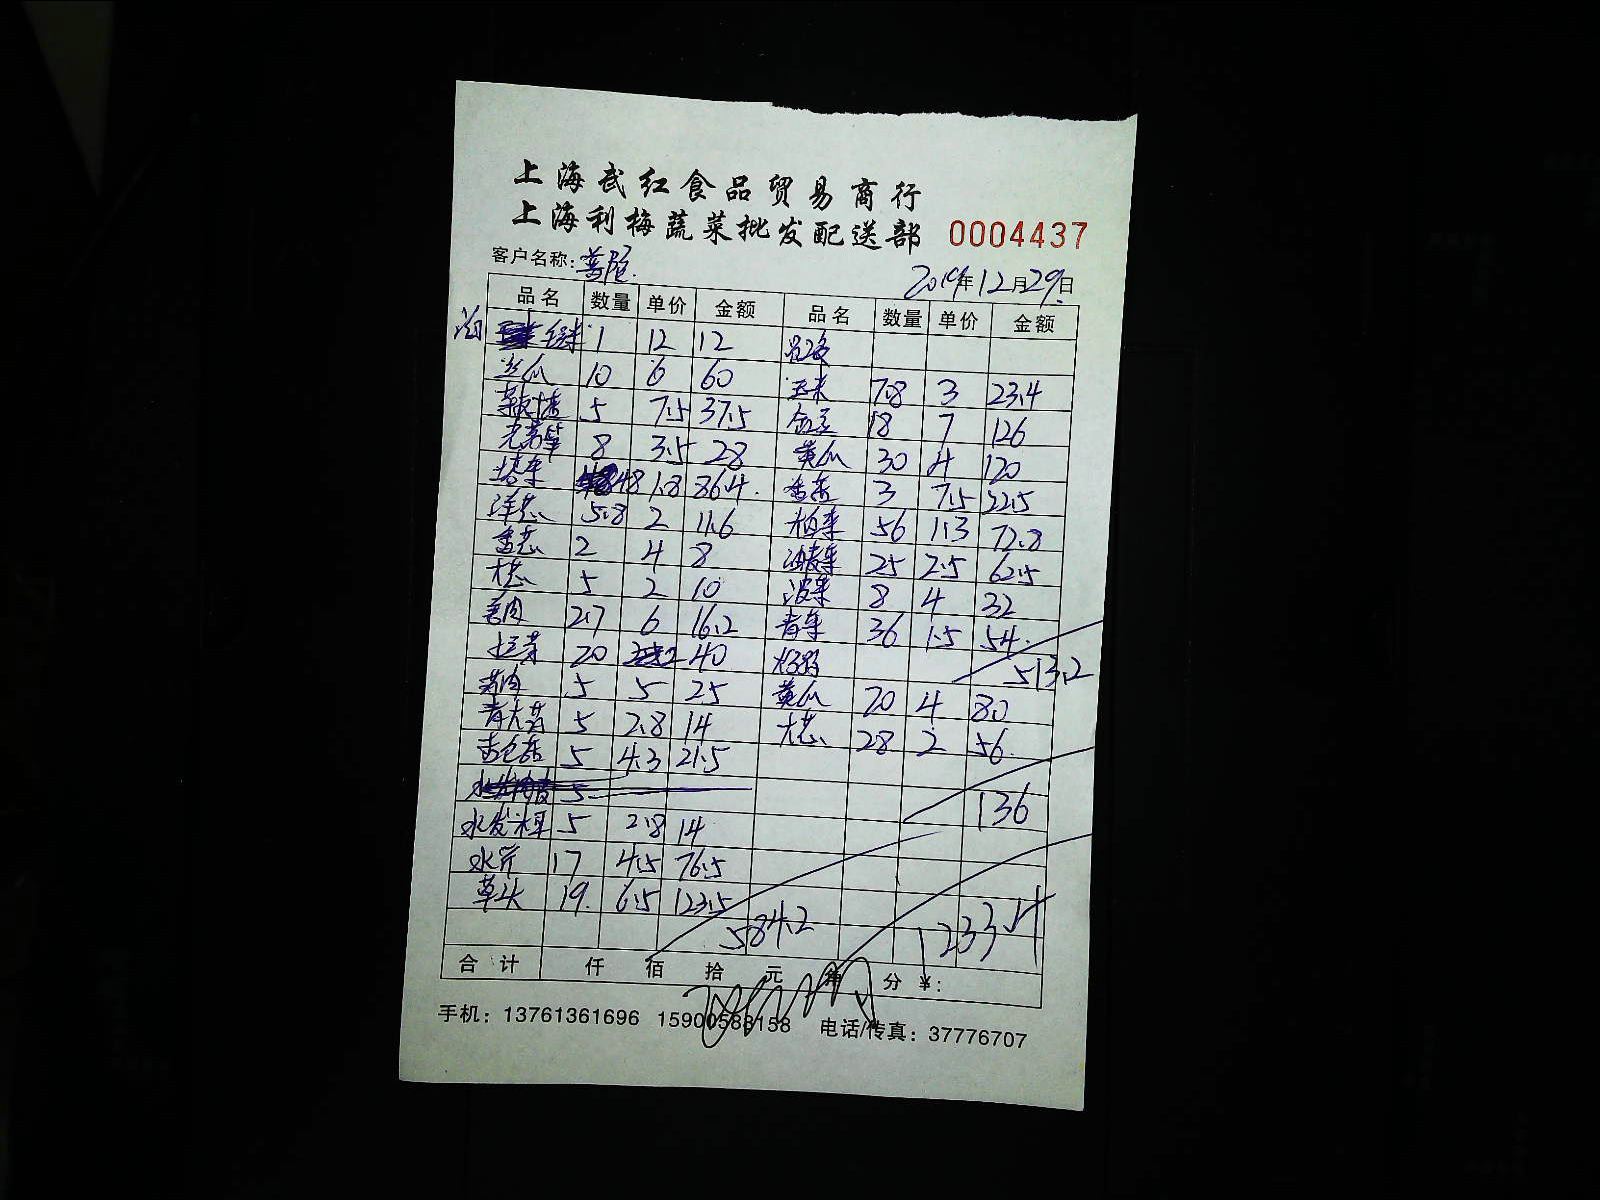 上海武红食品贸易商行
上海利梅蔬菜批发配送部 0004437
客户名称: 2019年12月29日
品名 数量 单价 金额 品名 数量 单价 金额
1 12 12
丝瓜 10 6 60 玉米 7.8 3 23.4
5 7.5 37.5 18 7 126
8 3.5 28 黄瓜 30 4 120
48 1.8 86.4 香菜 3 7.5 22.5
洋葱 5.8 2 11.6 大白菜 56 1.3 72.8
香葱 2 4 8 25 2.5 62.5
大葱 5 2 10 菠菜 8 4 32
姜肉 2.7 6 16.2 青菜 36 1.5 54
20 2 40 513.2
5 5 25 黄瓜 20 4 80
5 2.8 14 大葱 28 2 56
杏包菇 5 4.3 21.5
5 136
水发木耳 5 2.8 14
水芹 17 4.5 76.5
草头 19 6.5 123.5
584.2 1233.4
合计 仟 佰 拾 元 角 分 ¥:
手机: 13761361696 15900583158 电话/传真: 37776707